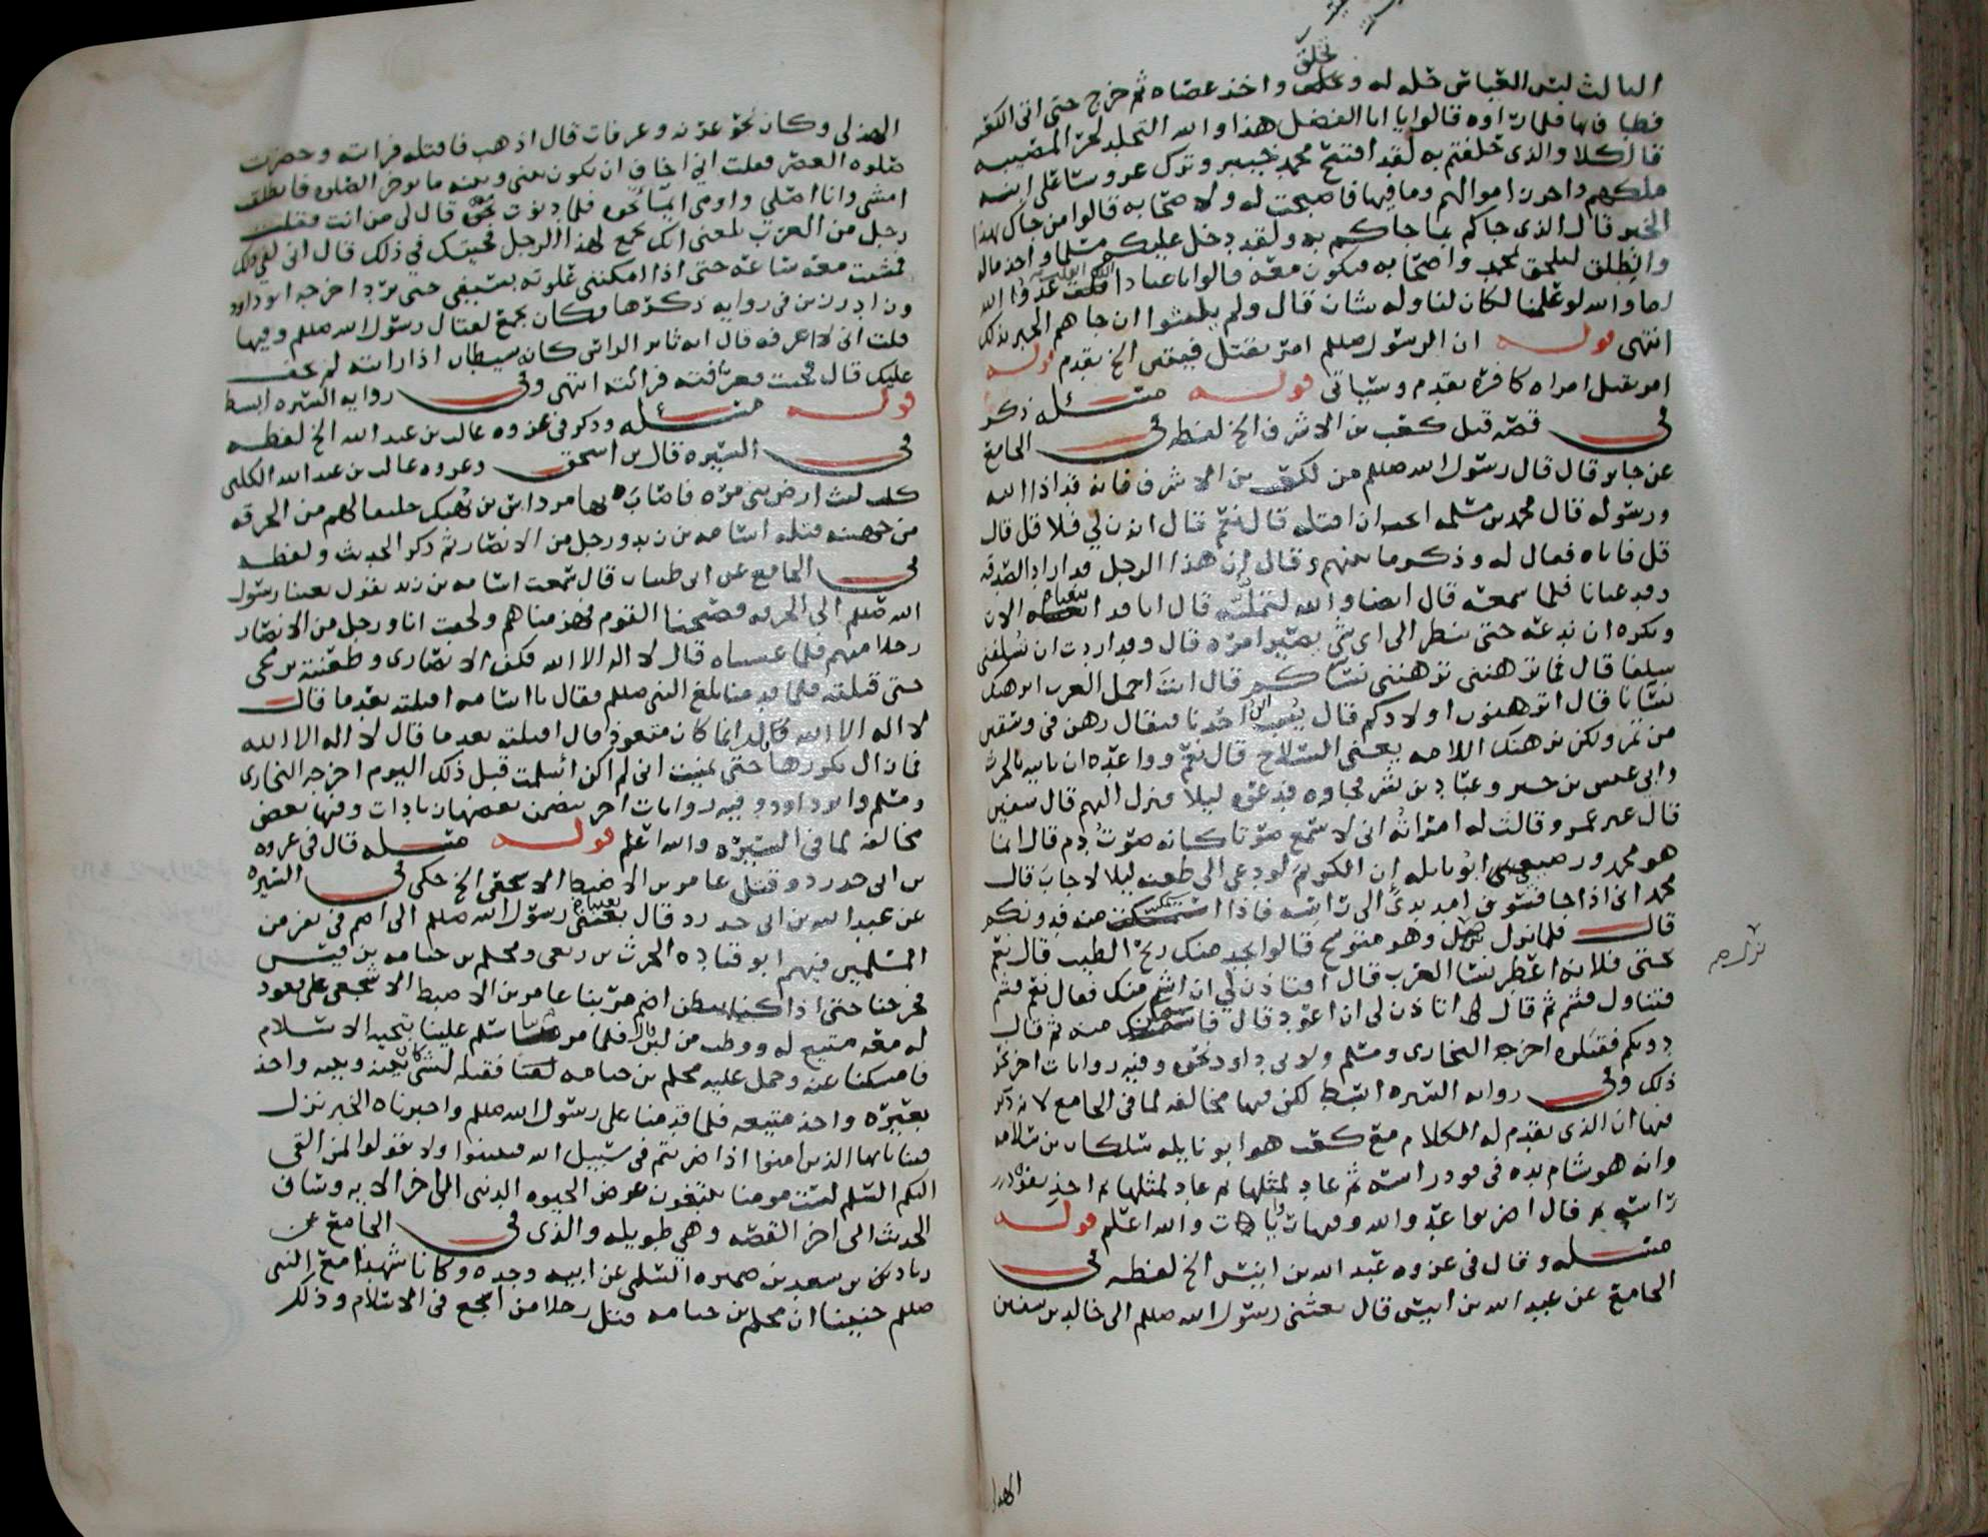 تخلق
الثالث لبس العباس حله له و واخذ عصاه ثم خرج حتى اتى الكعبه
فطاف بها فلما راوه قالوا يا ابا الفضل هذا والله التجلد لحر المصيبه
قال كلا والذي حلفتم به لقد افتتح محمد خيبر وترك عروسا على ابنه
ملكهم واحرز اموالهم وما فيها فاصبحت له ولاصحابه قالوا من جاك بهذا
الخبر قال الذي جاكم بما جاكم به ولقد دخل عليكم مسلما واخذ ماله
وانطلق ليلحق بمحمد واصحابه فيكون معه قالوا يا عباد الله انفلت عدو الله
اما والله لو علمنا لكان لنا وله شان قال ولم يلبثوا ان جاهم الخبر بذلك
انتهى قوله ان الرسول صللم امر بقتل الخ تقدم قوله
امر بقتل امراه كافره تقدم وسياتي قوله مسئله ذكر
في قصه قتل كعب بن الاشرف الخ لفظه في الجامع
عن جابر قال قال رسول الله صللم من لكعب بن الاشرف فانه قد اذا الله
ورسوله قال محمد بن مسلمه اتحب ان اقتله قال نعم قال ائذن لي فلاقل قال
قل فاتاه فقال له وذكر ما بينهم وقال ان هذا الرجل قد اراد الصدقه
وقد عنانا فلما سمعه قال ايضا والله لتملنه قال انا قد اتبعناه الان
ونكره ان ندعه حتى ننظر الى اي شي يصير امره قال وقد اردت ان تسلفني
سلفا قال فما ترهنني ترهنني نساكم قال انت اجمل العرب انرهنك
نسانا قال اترهنون اولادكم قال يسب ابن احدنا فيقال رهن في وسقين
من تمر ولكن نرهنك اللامه يعني السلاح قال نعم وواعده ان ياتيه بالحرث
وابي عبس بن جبر وعباد بن بشر فجاوه فدعوه ليلا فنزل اليهم قال سفين
قال غير عمرو قالت له امراته اني لاسمع صوتا كانه صوت دم قال انما
هو محمد ورضيعي ابو نايله ان الكريم لو دعي الى طعنه ليلا لاجاب قال
محمد اني اذا جا فسوف امد يدي الى راسه فاذا استمكنت منه فدونكم
قال فلما نزل نزل وهو متوشح قالوا نجد منك ريح الطيب قال نعم
نزل صح
تحتي فلانه اعطر نسا العرب قال افتاذن لي ان اشم منك فقال نعم فشم
فتناول فشم ثم قال اتاذن لي ان اعود قال فاستمكن منه ثم قال
دونكم فقتلوه اخرجه البخاري ومسلم ولابي داود نحوه وفيه روايات اخر نحو
ذلك وفي روايه السيره ابسط لكن فيها مخالفه لما في الجامع لانه ذكر
فيها ان الذي تقدم له الكلام مع كعب هو ابو نايله سلكان بن سلامه
وانه هو شام يده في فود راسه ثم عاد لمثلها ثم عاد لمثلها ثم اخذ بفود
راسه قال اضربوا عدو الله وفيها زيادات والله اعلم قوله
مسئله وقال في غزوه عبد الله بن انيس الخ لفظه في
الجامع عن عبد الله بن انيس قال بعثني رسول الله صللم الى خالد بن سفين
الهذلي
الهذلي وكان نحو عرنه وعرفات قال اذهب فاقتله فرايته وحضرت
صلوه العصر فقلت اني اخاف ان يكون بيني وبينه ما يوخر الصلوه فانطلقت
امشي وانا اصلي واومي ايماء نحوه فلما دنوت منه قال لي من انت فقلت
رجل من العرب بلغني انك تجمع لهذا الرجل فجيتك في ذلك قال اني لفي ذلك
فمشيت معه ساعه حتى اذا امكنني علوته بسيفي حتى برد اخرجه ابو داود
وزاد رزين في روايه ذكرها وكان يجمع لقتال رسول الله صللم وفيها
قلت اني لا اعرفه قال انه ثاير الراس كانه شيطان اذا رايته لم يخف
عليك قال فجيت فعرفته فرايته انتهى وفي روايه السيره ابسط
قوله مسئله وذكر في غزوه غالب بن عبد الله الخ لفظه
في السيره قال بن اسحق وغزوه غالب بن عبد الله الكلبي
كلب ليث ارض بني مره فاصاب بها مرداس بن نهيك حليفا لهم من الحرقه
من جهينه قتله اسامه بن زيد ورجل من الانصار ثم ذكر الحديث ولفظه
في الجامع عن ابي ظبيان قال سمعت اسامه بن زيد يقول بعثنا رسول
الله صللم الى الحرقه فصبحنا القوم فهزمناهم ولحقت انا ورجل من الانصار
رجلا منهم فلما غشيناه قال لا اله الا الله فكف الانصاري وطعنته برمحي
حتى قتلته فلما قدمنا بلغ النبي صللم فقال يا اسامه اقتلته بعد ما قال
لا اله الا الله قلت انما كان متعوذا قال اقتلته بعد ما قال لا اله الا الله
فما زال يكررها حتى تمنيت اني لم اكن اسلمت قبل ذلك اليوم اخرجه البخاري
ومسلم وابو داود وفيه روايات اخر يتضمن بعضها زيادات وفيها بعض
مخالفه لما في السيره والله اعلم قوله مسئله قال في غزوه
بن ابي حدرد وقتل عامر بن الاضبط الاشجعي الخ حكى في السيره
عن عبد الله بن ابي حدرد قال بعثنا رسول الله صللم الى اضم في نفر من
المسلمين فيهم ابو قتاده الحرث بن ربعي ومحلم بن جثامه بن قيس
فخرجنا حتى اذا كنا ببطن اضم مر بنا عامر بن الاضبط الاشجعي على قعود
له معه متيع له ووطب من لبن قال فلما مر بنا سلم علينا بتحيه الاسلام
فامسكنا عنه وحمل عليه محلم بن جثامه فقتله لشي كان بينه وبينه واخذ
بعيره واخذ متيعه فلما قدمنا على رسول الله صللم واخبرناه الخبر نزل
فينا يايها الذين امنوا اذا ضربتم في سبيل الله فتبينوا ولا تقولوا لمن القى
اليكم السلم لست مومنا تبتغون عرض الحيوه الدنيا الى اخر الايه وساق
الحديث الى اخر القصه وهي طويله والذي في الجامع عن
زياد بن سعد بن ضميره السلمي عن ابيه وجده وكانا شهدا مع النبي
صللم حنينا ان محلم بن جثامه قتل رجلا من اشجع في الاسلام وذلك